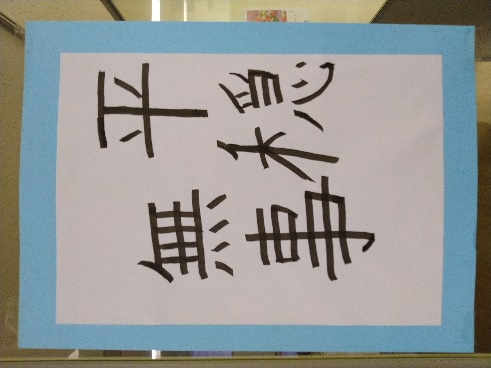 平穏
無事